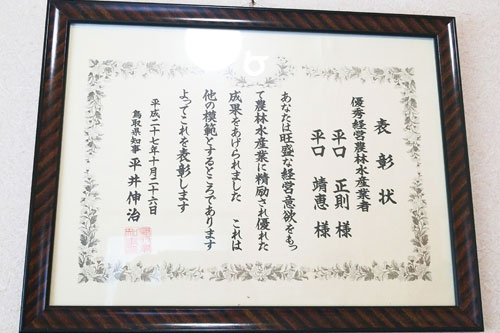 表彰状
優秀経営農林水産業者
平口 正則 様
平口 靖恵 様
あなたは旺盛な経営意欲をもっ
て農林水産業に精励され優れた
成果をあげられました これは
他の模範とするところであります
よってこれを表彰します
平成二十七年十月二十六日
鳥取県知事 平井伸治